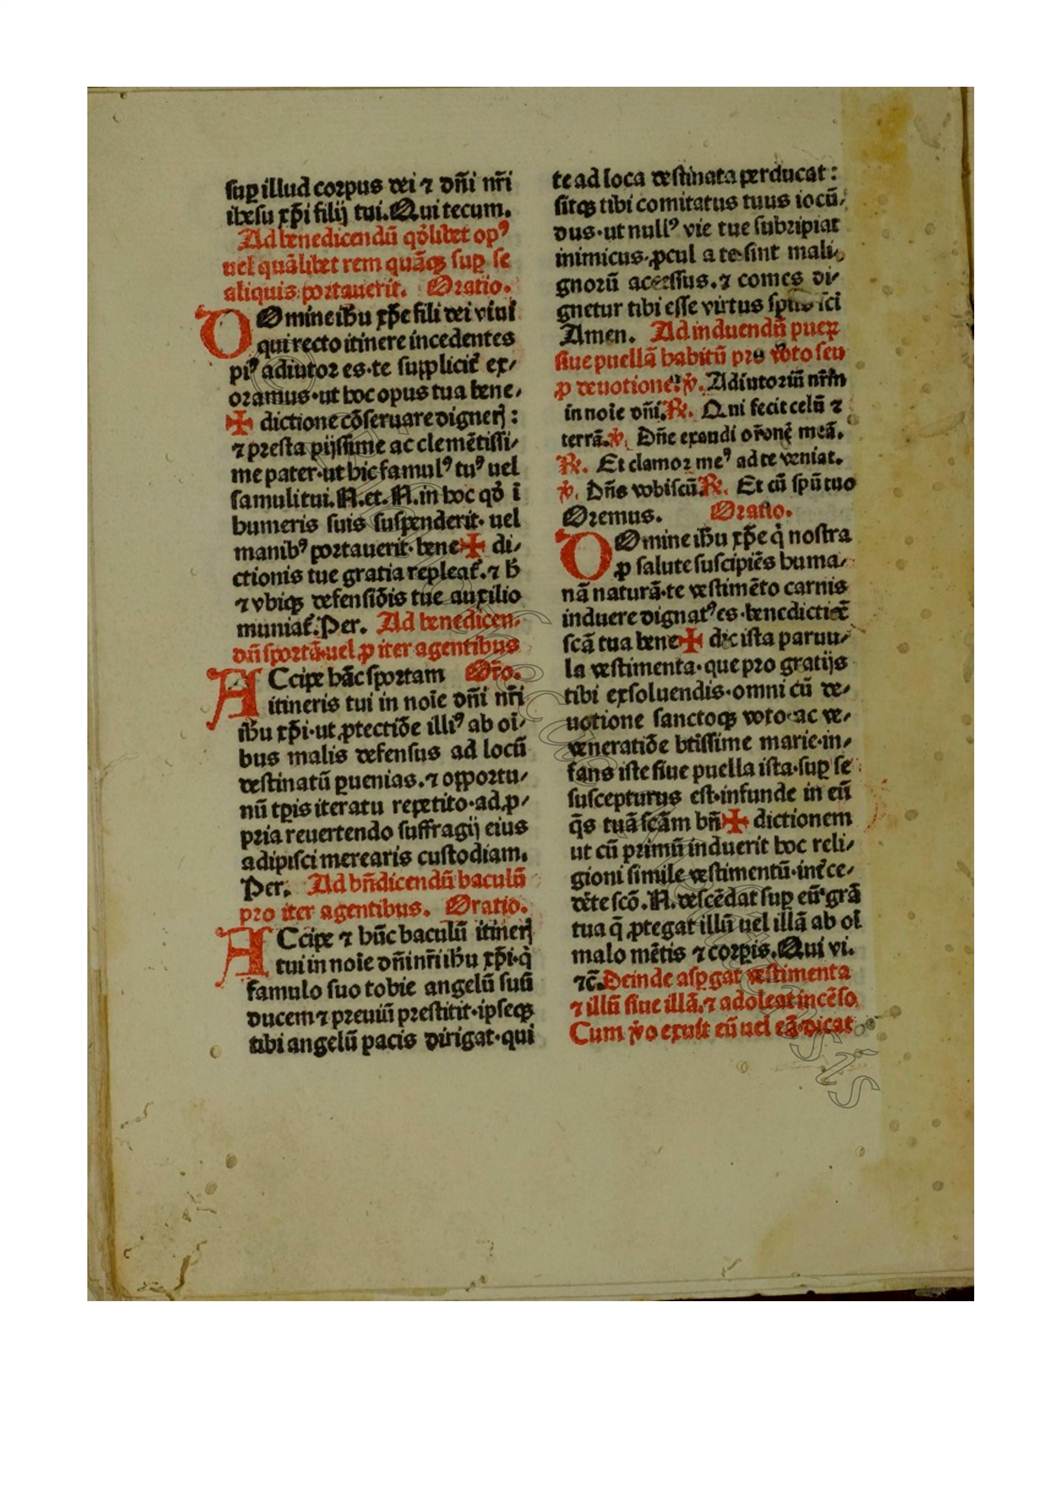 sup̱ illud corpus dei ⁊ dñi nr̃i
ihesu xp̄i filij tui. Qui tecum.
Ad benedicendū qḋlibet opꝰ
uel quālibet rem quāqꝫ sup̱ se
aliquis portauerit. Oratio.
Domine ih̄u xp̄e fili dei viui
qui recto itinere incedentes
piꝰ adiutor es·te supplicit̄ ex⸗
oramus·ut hoc opus tua bene⸗
✠ dictione cōseruare digneri:
⁊ presta pijssime ac clemētissi⸗
me pater·ut hic famulꝰ tuꝰ uel
famuli tui. N. et. N. in hoc qḋ ī
humeris suis suspenderit· uel
manibꝰ portauerit· bene✠ di⸗
ctionis tue gratia repleat̄. ⁊ h̄
⁊ vbiqꝫ defensiōis tue auxilio
muniat̄. Per. Ad benedicen⸗
dū sportā·uel ꝓ iter agentibus
ACcipe hāc sportam Or̃o.
itineris tui in noīe dñi nr̃i
ih̄u xp̄i·ut ꝓtectiōe illiꝰ ab oī⸗
bus malis defensus ad locū
destinatū p̱uenias. ⁊ opportu⸗
nū tp̄is iteratu repetito·ad ꝓ⸗
pria reuertendo suffragij eius
adipisci merearis custodiam.
Per. Ad bn̄dicendū baculū
pro iter agentibus. Oratio.
ACcipe ⁊ hūc baculū itineri
tui in noīe dñi nr̃i ih̄u xp̄i·q̇
famulo suo tobie angelū suū
ducem ⁊ preuiū prestitit·ipseqꝫ
tibi angelū pacis dirigat·qui
te ad loca destinata perducat:
sitqꝫ tibi comitatus tuus iocū⸗
dus·ut nullꝰ vie tue subripiat
inimicus·ꝓcul a te sint mali⸗
gnorū accessus. ⁊ comes di⸗
gnetur tibi esse virtus spūs sc̄i
Amen. Ad induendū puep̱
siue puellā habitū pro voto seu
ꝓ deuotione. ℣. Adiutoriū nr̄m
in noīe dñi. ℟. Qui fecit celū ⁊
terrā. ℣. Dñe exaudi or̃onē meā.
℟. Et clamor meꝰ ad te veniat.
℣. Dñs vobiscū. ℟. Et cū spū tuo
Oremus. Oratio.
Domine ih̄u xp̄e q̇ nostra
ꝓ salute suscipiēs huma⸗
nā naturā·te vestimēto carnis
induere dignatꝰ es·benedictiōe
scā tua bene✠ dic ista paruu⸗
la vestimenta·que pro gratijs
tibi exsoluendis·omni cū de⸗
uotione sanctoqꝫ voto·ac ve⸗
veneratiōe btīssime marie·in⸗
fans iste siue puella ista·sup̱ se
suscepturus est·infunde in eū
q̄s tuā scām bn̄✠ dictionem
ut cū primū induerit hoc reli⸗
gioni simile vestimentū·int̄ce⸗
dēte scō. N. descēdat sup̱ eū grā
tua q̄ ꝓtegat illū uel illā ab oī
malo mētis ⁊ corp̱is. Qui vi.
⁊c̄. Deinde asp̱gat vestimenta
⁊ illū siue illā. ⁊ adoleat incēso
Cum v̇o exuit eū uel eā·dicat